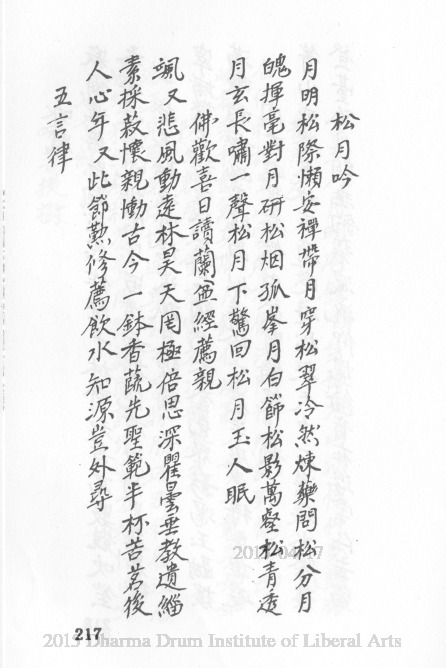 松月吟
月明松際懶安禪帶月穿松翠冷然煉藥問松分月
魄揮毫對月研松烟孤峯月白篩松影萬壑松青透
月玄長嘯一聲松月下驚回松月玉人眠
佛歡喜日讀蘭盆經薦親
颯々悲風動遠林昊天罔極倍思深瞿曇垂教遺緇
素採菽懷親慟古今一鉢香蔬先聖範半杯苦茗後
人心年々此節懃修薦飲水知源豈外尋
五言律
217
2015 Dharma Drum Institute of Liberal Arts